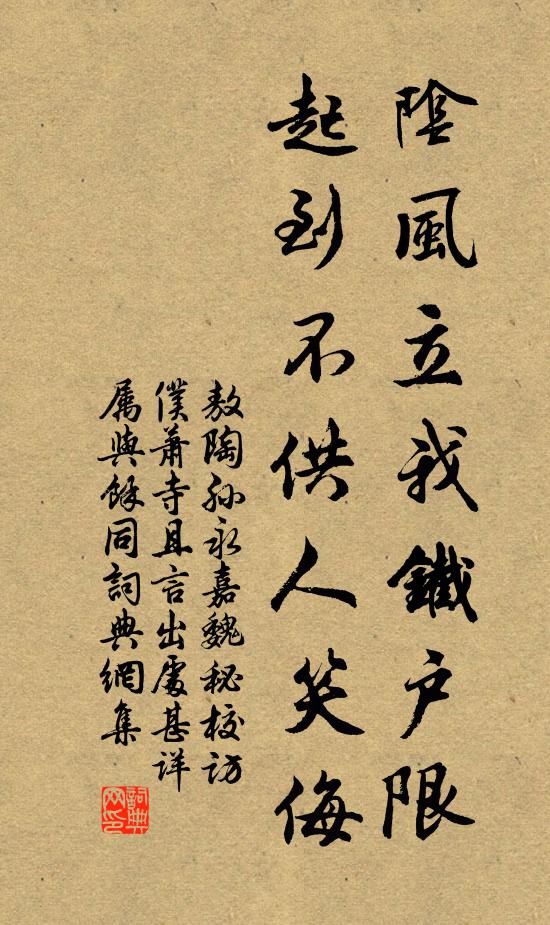 陰風立我鐵户限
起到不供人笑侮
敖陶孙永嘉魏秘校訪
僕蕭寺且言出處甚详
属與餘同詞典網集
詞典网印